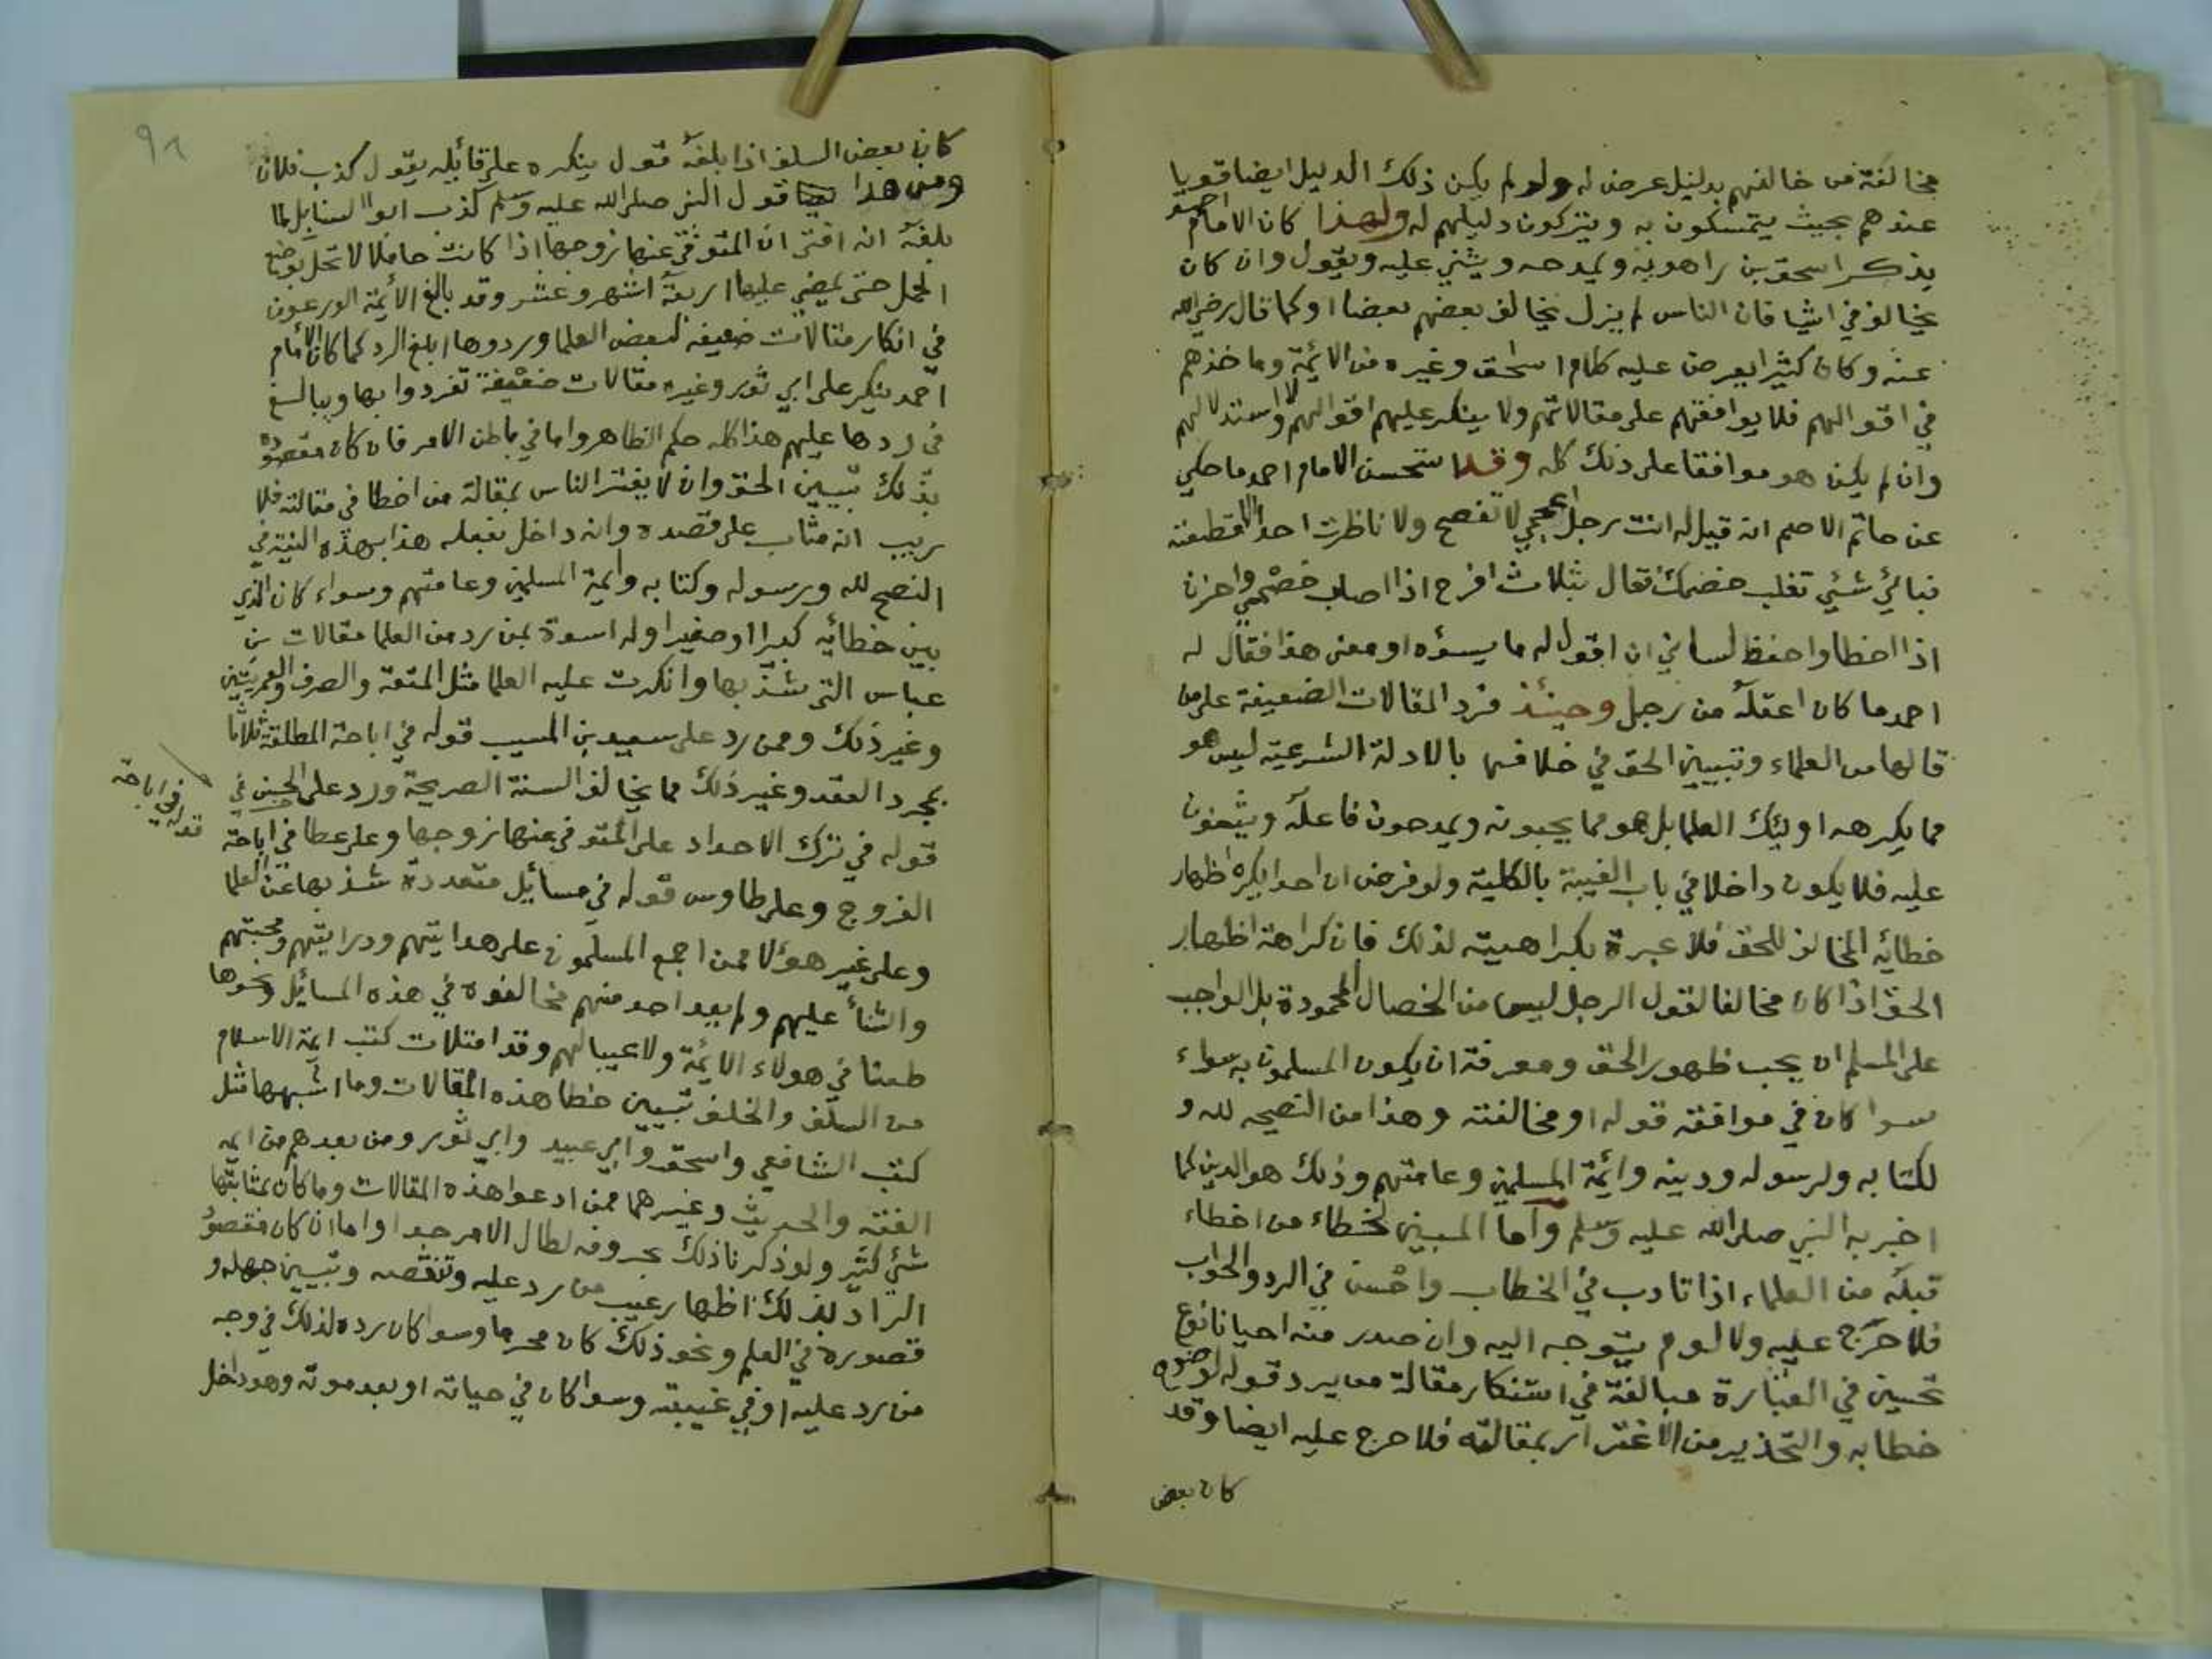 مخالفة من خالفهم بدليل عرض له ولو لم يكن ذلك الدليل ايضا قويا
عندهم بحيث يتمسكون به ويتركون دليلهم له ولهذا كان الامام احمد
يذكر اسحق بن راهويه ويمدحه ويثني عليه ويقول وان كان
يخالف في اشيا فان الناس لم يزل يخالف بعضهم بعضا او كما قال رضي الله
عنه وكان كثيرا يعرض عليه كلام اسحق وغيره من الائمة وماخذهم
في اقوالهم فلا يوافقهم على مقالاتهم ولا ينكر عليهم اقوالهم ولا استدلالهم
وان لم يكن هو موافقا على ذلك كله وقد استحسن الامام احمد ما حكي
عن حاتم الاصم انه قيل له انت رجل اعجمي لا تفصح ولا ناظرت احدا الا قطعته
فبائي شئي تغلب خصمك فقال بثلاث افرح اذا اصاب خصمي واحزن
اذا اخطا واحفظ لساني ان اقول له ما يسؤه او معنى هذا فقال له
احمد ما كان اعقله من رجل وحينئذ فرد المقالات الضعيفة على من
قالها من العلماء وتبيين الحق في خلافها بالادلة الشرعية ليس هو
مما يكرهه اوليئك العلما بل هو مما يحبونه ويمدحون فاعله ويثنون
عليه فلا يكون داخلا في باب الغيبة بالكلية ولو فرض ان احدا يكره اظهار
خطائه المخالف للحق فلا عبرة بكراهيته لذلك فان كراهة اظهار
الحق اذا كان مخالفا لقول الرجل ليس من الخصال المحمودة بل الواجب
على المسلم ان يحب ظهور الحق ومعرفة ان يكون المسلمون به سواء
سوا كان في موافقه قوله او مخالفته وهذا من النصيحه لله و
لكتابه ولرسوله ودينه وائمة المسلمين وعامتهم وذلك هو الدين كما
اخبر به النبي صلى الله عليه وسلم واما المبين لخطاء من اخطاء
قبله من العلماء اذا تادب في الخطاب واحسن في الرد والجواب
فلا حرج عليه ولا لوم يتوجه اليه وان صدر منه احيانا نوع
تحسين في العبارة مبالغة في استنكار مقالة من يرد قوله لوضوح
خطابه والتحذير من الاغترار بمقالته فلا حرج عليه ايضا وقد
كان بعض
٩٦
كان بعض السلف اذا بلغه قول ينكره على قائيله يقول كذب فلان
ومن هذا قول النبي صلى الله عليه وسلم كذب ابوا السنابل لما
بلغه انه افتى ان المتوفي عنها زوجها اذا كانت حاملا لا تحل بوضع
الحمل حتى يمضي عليها اربعة اشهر وعشر وقد بالغ الأيمة الورعون
في انكار مقالات ضعيفه لبعض العلما وردوها ابلغ الرد كما كان الامام
احمد ينكر على ابي ثور وغيره مقالات ضعيفة تفردوا بها ويبالغ
في ردها عليهم هذا كله حكم الظاهر واما في باطن الامر فان كان مقصوده
بذلك تبيين الحق وان لا يغتر الناس بمقالة من اخطا في مقالته فلا
ريب انه مثاب على قصده وانه داخل بفعله هذا بهذه النية في
النصح لله ورسوله وكتابه وأيمة المسلمين وعامتهم وسواء كان الذي
بين خطائه كبيرا او صغيرا وله اسوة بمن رد من العلما مقالات بن
عباس التي شذ بها وانكرت عليه العلما مثل المتعة والصرف والعمريتين
وغير ذلك وممن رد على سعيد بن المسيب قوله في اباحة المطلقة ثلاثا
بمجرد العقد وغير ذلك مما يخالف السنة الصريحة ورد على الحسن في
قوله في ترك الاحداد على المتوفي عنها زوجها وعلى عطا في اباحة
الفروج وعلى طاوس قوله في مسائيل متعددة شذ بها عن العلما
وعلى غير هؤلا ممن اجمع المسلمون على هدايتهم ودرايتهم ومحبتهم
والثنأ عليهم ولم يعد احد منهم مخالفوه في هذه المسائيل ونحوها
طعنا في هولاء الائمة ولا عيبا لهم وقد امتلات كتب ايمة الاسلام
من السلف والخلف بتبيين خطا هذه المقالات وما اشبهها مثل
كتب الشافعي واسحق وابي عبيد وابي ثور ومن بعدهم من ايمه
الفقه والحديث وغيرهما ممن ادعوا هذه المقالات وما كان بمثابتها
شئي كثير ولو ذكرنا ذلك بحروفه لطال الامر جدا واما ان كان مقصود
الراد بذلك اظهار عيب من رد عليه وتنقصه وتبيين جهله و
قصوره في العلم ونحو ذلك كان محرما وسوا كان رده لذلك في وجه
من رد عليه او في غيبته وسوا كان في حياته او بعد موته وهو داخل
قوله في اباحة